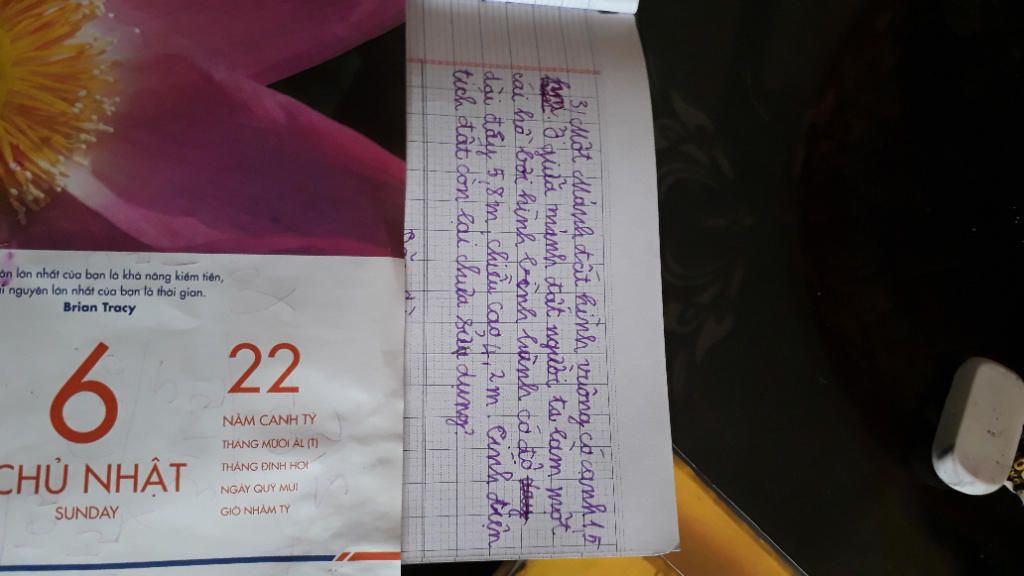 ản lớn nhất của bạn là khả năng kiếm tiền,
ài nguyên lớn nhất của bạn là thời gian.
Brian Tracy
6
CHỦ NHẬT
SUNDAY
22
NĂM CANH TÝ
THÁNG MƯỜI ÂL (T)
THÁNG ĐINH HỢI
NGÀY QUÝ MÙI
GIỜ NHÂM TÝ
3, Một Mảnh đất hình vuông có cạnh 15
m. Ở giữa mảnh đất người ta làm một
cái hồ bơi hình bình hành có độ
dài đấy 5,8m, chiều cao 4,2m. Tính diện
tích đất còn lại chưa sửu dụng?